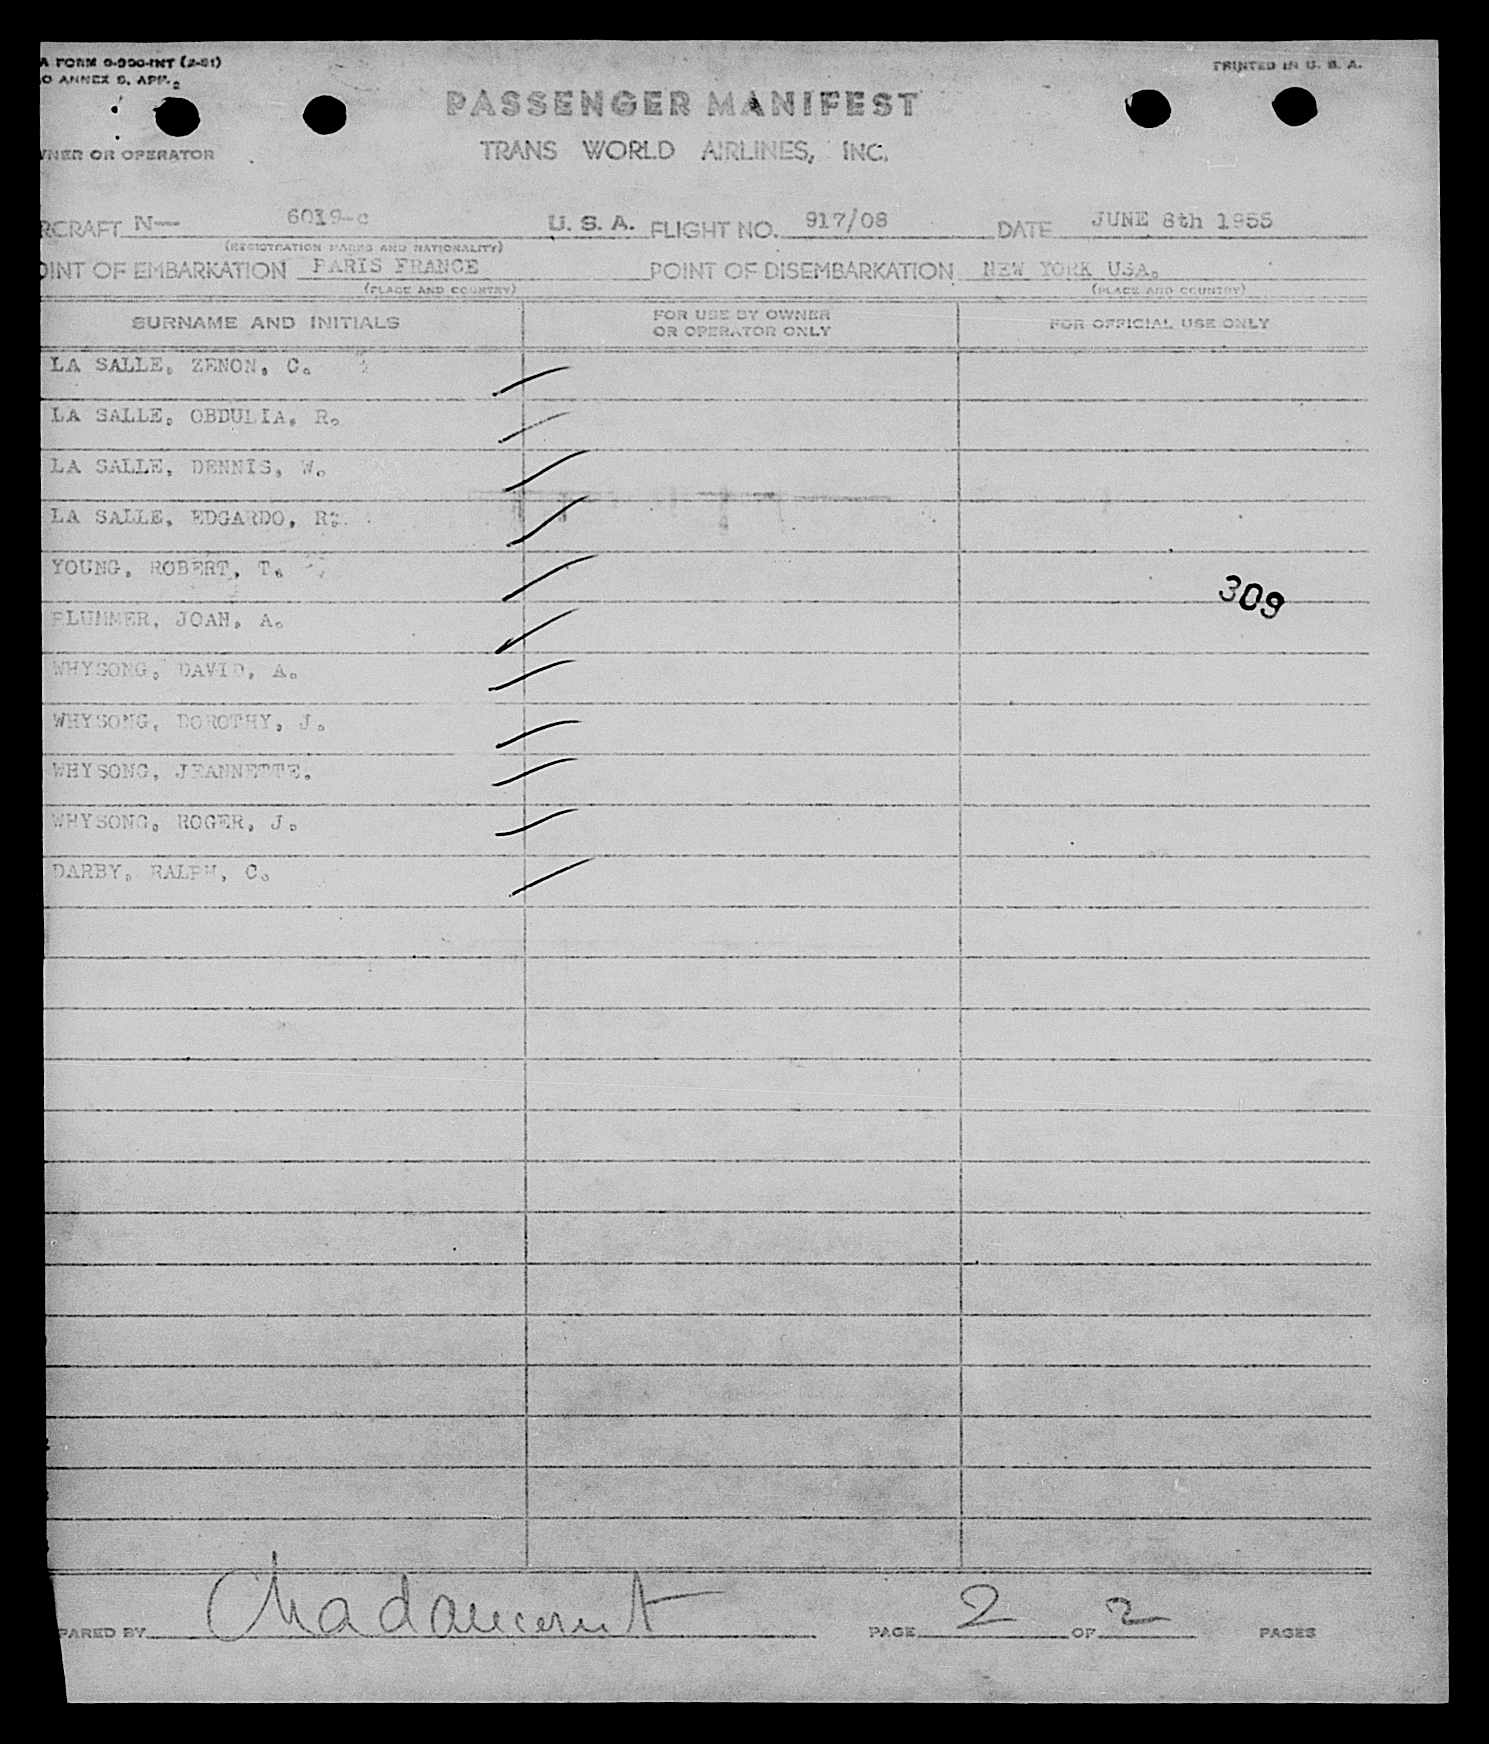 A FORM 0-990-INT (2-51)
O ANNEX 9, APP. 2
PRINTED IN U. S. A.
PASSENGER MANIFEST
WNER OR OPERATOR
TRANS WORLD AIRLINES, INC.
RCRAFT N— 6019-c U. S. A. FLIGHT NO. 917/08 DATE JUNE 8th 1955
(REGISTRATION MARKS AND NATIONALITY)
OINT OF EMBARKATION PARIS FRANCE POINT OF DISEMBARKATION NEW YORK USA.
(PLACE AND COUNTRY) (PLACE AND COUNTRY)
SURNAME AND INITIALS FOR USE BY OWNER OR OPERATOR ONLY FOR OFFICIAL USE ONLY
LA SALLE, ZENON, C.
LA SALLE, OBDULIA, R.
LA SALLE, DENNIS, W.
LA SALLE, EDGARDO, R.
YOUNG, ROBERT, T.
309
PLUMMER, JOAN, A.
WHYSONG, DAVID, A.
WHYSONG, DOROTHY, J.
WHYSONG, JEANNETTE.
WHYSONG, ROGER, J.
DARBY, RALPH, C.
PARED BY PAGE 2 OF 2 PAGES